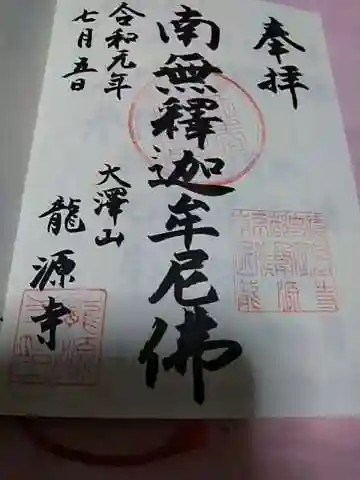 奉拝
南無釋迦牟尼佛
大澤山
龍源寺
令和元年
七月五日